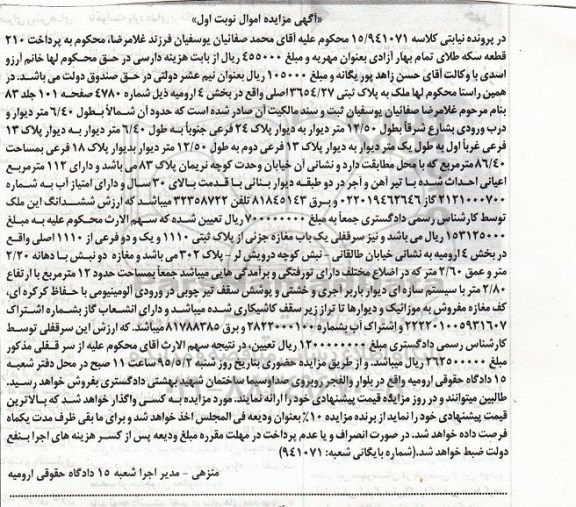 «آگهی مزایده اموال نوبت اول»
در پرونده نیابتی کلاسه ۱۵/۹۴۱۰۷۱ محکوم علیه آقای محمد صفائیان یوسفیان فرزند غلامرضا، محکوم به پرداخت ۲۱۰
قطعه سکه طلای تمام بهار آزادی بعنوان مهریه و مبلغ ۴۵۵۰۰۰ ریال از بابت هزینه دارسی در حق محکوم لها خانم آرزو
اسدی با وکالت آقای حسن زاهد پور یگانه و مبلغ ۱۰۵۰۰۰ ریال بعنوان نیم عشر دولتی در حق صندوق دولت می باشد. در
همین راستا محکوم لها ملک به پلاک ثبتی ۳۶۵۴/۲۷ اصلی واقع در بخش ۴ ارومیه ذیل شماره ۴۷۸۰ صفحه ۱۰۱ جلد ۸۳
بنام مرحوم غلامرضا صفائیان یوسفیان ثبت و سند مالکیت آن صادر شده است که حدود آن شمالاً بطول ۶/۴۰ متر دیوار و
درب ورودی بشارع شرقاً بطول ۱۲/۵۰ متر دیوار به دیوار پلاک ۲۴ فرعی جنوباً به طول ۶/۴۰ متر دیوار به دیوار پلاک ۱۳
فرعی غرباً اول به طول یک متر دیوار به دیوار پلاک ۱۳ فرعی دوم به طول ۱۲/۵۰ متر دیوار بدیوار پلاک ۱۸ فرعی بمساحت
۸۶/۴۰ مترمربع که با محل مطابقت دارد و نشانی آن خیابان وحدت کوچه نریمان پلاک ۸۳ می باشد و دارای ۱۱۲ مترمربع
اعیانی احداث شده با تیر آهن و آجر در دو طبقه دیوار بنائی با قدمت بالای ۳۰ سال و دارای امتیاز آب به شماره
۲۱۲۱۰۰۰۷۰۰ گاز ۰۲۲۰۱۹۴۶۲۶۴۶ و برق ۸۱۸۴۵۱۴۳ تلفن ۳۲۳۵۸۷۲۲ میباشد که ارزش ششدانگ این ملک
توسط کارشناس رسمی دادگستری جمعاً به مبلغ ۷۰۰۰۰۰۰۰۰ ریال تعیین شده که سهم الارث محکوم علیه به مبلغ
۱۵۳۱۲۵۰۰۰ ریال می باشد و نیز سرقفلی یک باب مغازه جزئی از پلاک ثبتی ۱۱۱۰ و یک و دو فرعی از ۱۱۱۰ اصلی واقع
در بخش ۴ ارومیه به نشانی خیابان طالقانی - نبش کوچه درویش لر - پلاک ۳۰۲ می باشد و مغازه دو نبش با دهانه ۲/۲۰
متر و عمق ۲/۶۰ متر که در اضلاع مختلف دارای تورفتگی و برآمدگی هایی میباشد جمعاً بمساحت حدود ۱۲ مترمربع با ارتفاع
۲/۸۰ متر با سیستم سازه ای دیوار باربر آجری و خشتی و پوشش سقف تیر چوبی در ورودی آلومینیومی با حفاظ کرکره ای،
کف مغازه مفروش به موزائیک و دیوارها تا تراز زیر سقف کاشیکاری شده میباشد و دارای انشعاب گاز بشماره اشتراک
۲۲۲۲۰۱۰۰۵۹۳۱۶۰۷ و اشتراک آب بشماره ۲۸۲۲۰۰۰۱۰۰ و برق ۸۱۷۸۸۳۸۵ میباشد. که ارزش این سرقفلی توسط
کارشناس رسمی دادگستری مبلغ ۱۲۰۰۰۰۰۰۰۰ ریال تعیین، در نتیجه سهم الارث آقای محکوم علیه از سر قفلی مذکور
مبلغ ۲۶۲۵۰۰۰۰۰ ریال میباشد. و از طریق مزایده حضوری بتاریخ روز شنبه ۹۵/۵/۲ ساعت ۱۱ صبح در محل دفتر شعبه
۱۵ دادگاه حقوقی ارومیه واقع در بلوار والفجر روبروی صداوسیما ساختمان شهید بهشتی دادگستری بفروش خواهد رسید.
طالبین میتوانند و در روز مزایده قیمت پیشنهادی خود را ارائه نمایند. مورد مزایده به کسی واگذار خواهد شد که بالاترین
قیمت پیشنهادی خود را نماید از برنده مزایده ۱۰٪ بعنوان ودیعه فی المجلس اخذ خواهد شد و برای ما بقی ظرف مدت یکماه
فرصت داده خواهد شد. در صورت انصراف و یا عدم پرداخت در مهلت مقرره مبلغ ودیعه پس از کسر هزینه های اجرا بنفع
دولت ضبط خواهد شد.(شماره بایگانی شعبه: ۹۴۱۰۷۱)
منزهی - مدیر اجرا شعبه ۱۵ دادگاه حقوقی ارومیه